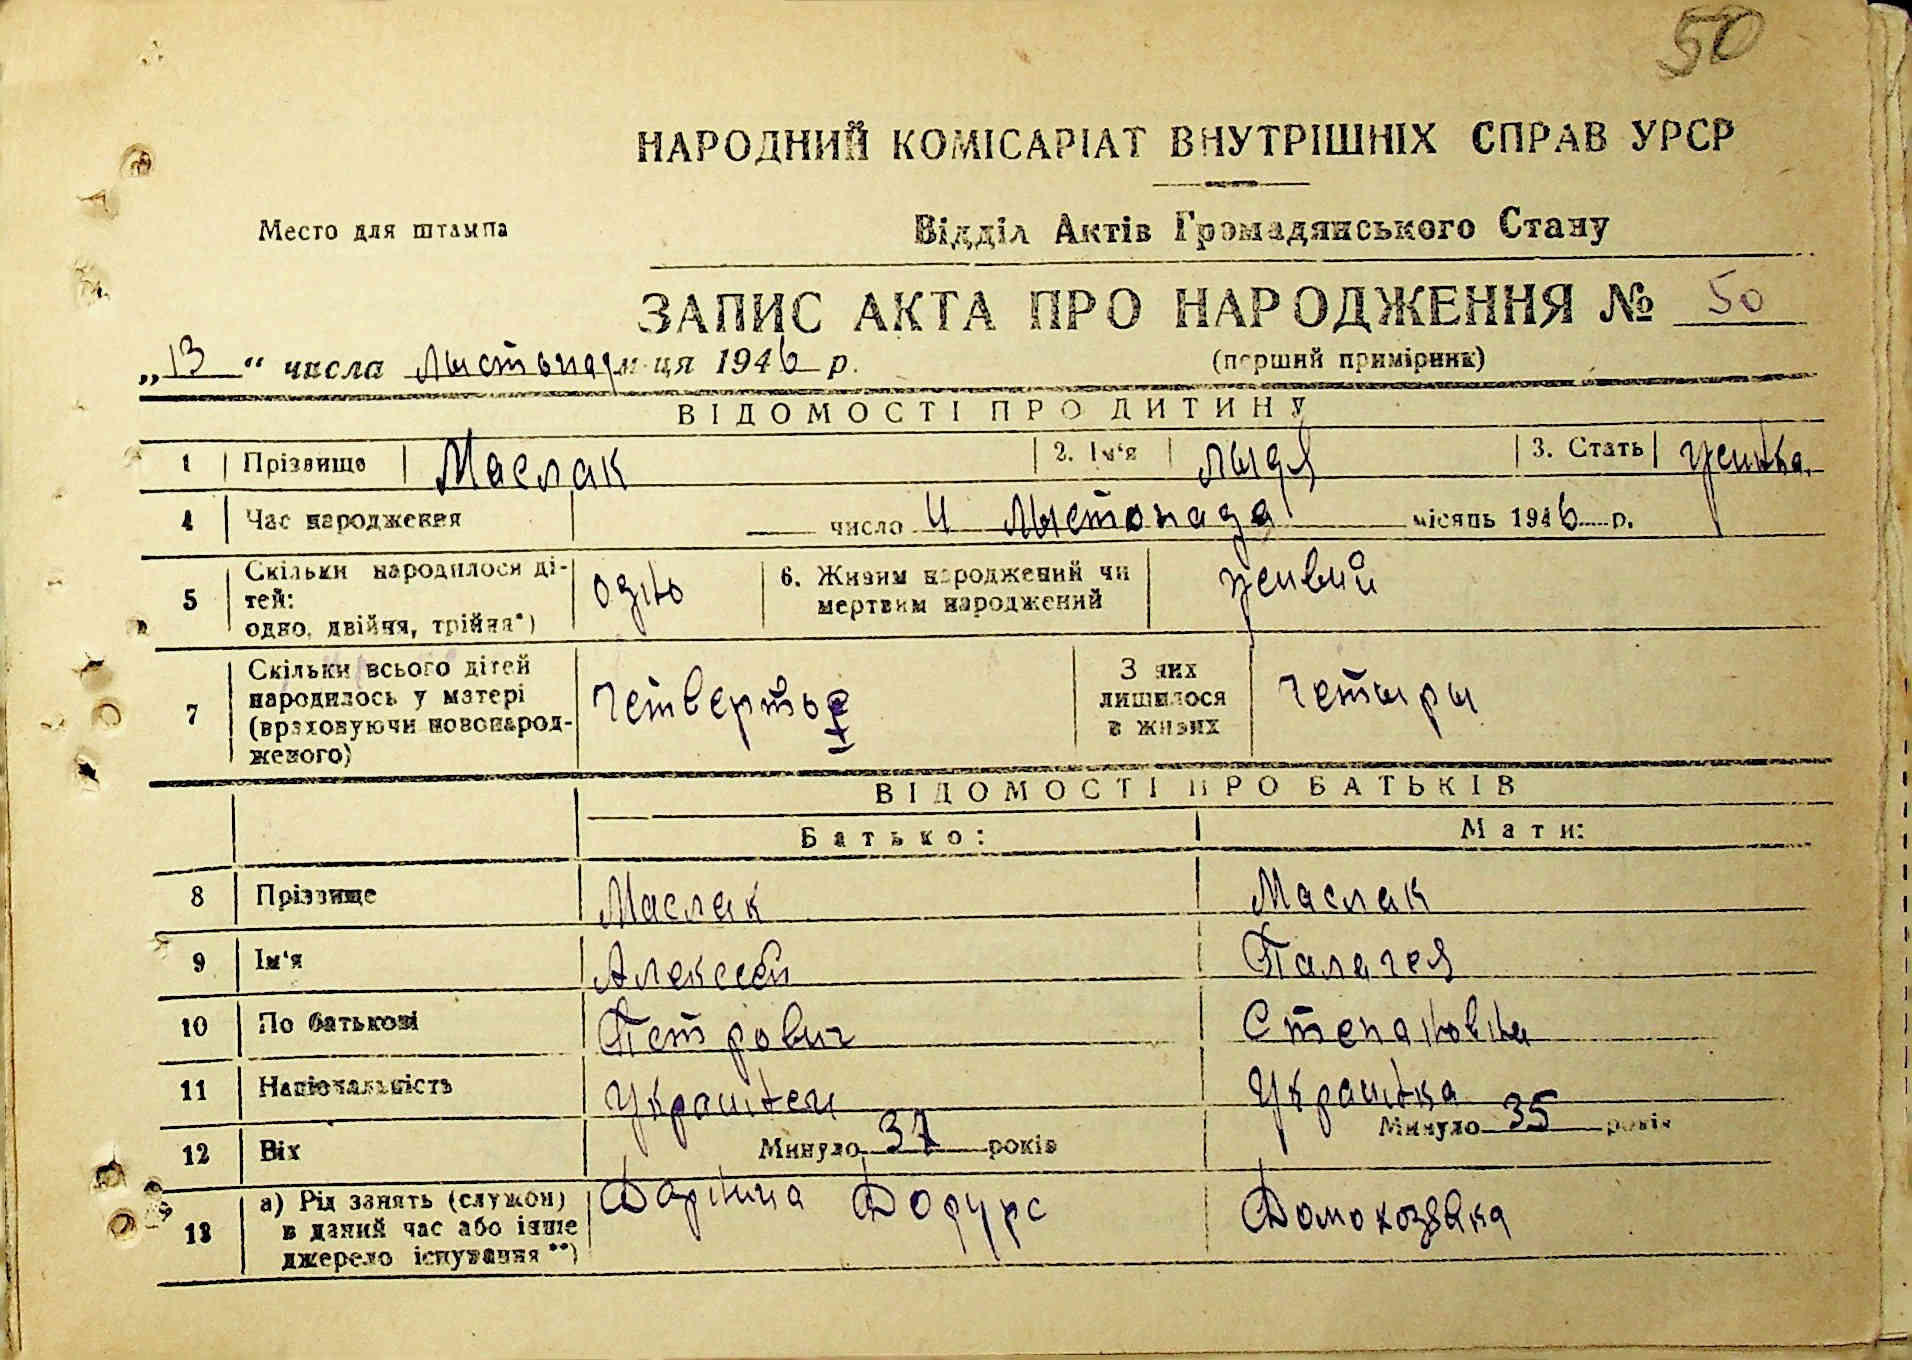 50
НАРОДНИЙ КОМІСАРІАТ ВНУТРІШНІХ СПРАВ УРСР
Место для штампа
Відділ Актів Громадянського Стану
ЗАПИС АКТА ПРО НАРОДЖЕННЯ № 50
„13“ числа лыстопад м-ця 1946 р.
(перший примірник)
ВІДОМОСТІ ПРО ДИТИНУ
1 Прізвище Маслак 2. Ім‘я лыдя 3. Стать женка.
4 Час народження число 4 лыстопада місяць 1946 р.
5 Скільки народилося ді-
тей:
одно, двійня, трійня*) одно 6. Живим народжений чи
мертвим народжений живий
7 Скільки всього дітей
народилось у матері
(враховуючи новонарод-
женого) четверто З яих
лишилося
в живих четыры
ВІДОМОСТІ ПРО БАТЬКІВ
Батько: Мати:
8 Прізвище Маслак Маслак
9 Ім‘я Алексей Палагея
10 По батькові Петрович Степановна
11 Національність Украинец Украинка
12 Вік Минуло 37 років Минуло 35 років
13 а) Рід занять (служби)
в даний час або інше
джерело існування**) Домохозяйка